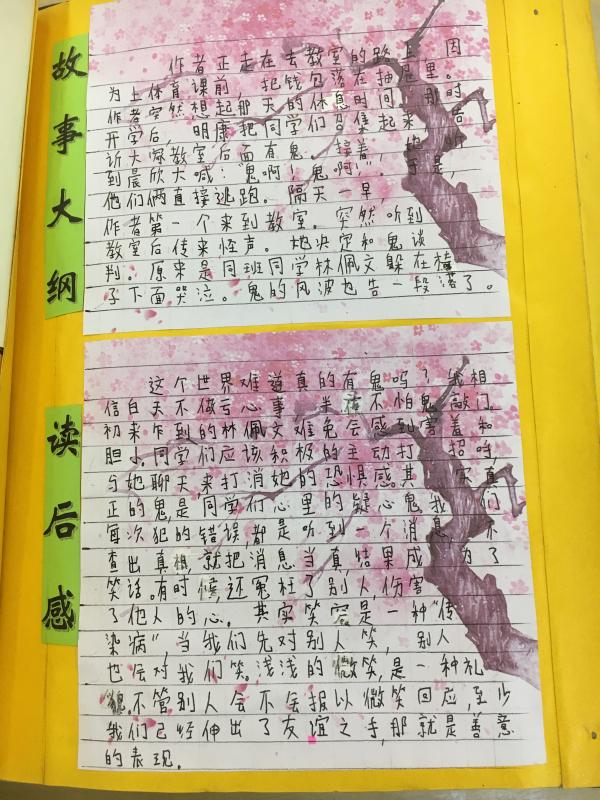 故事大纲
作者正走在去教室的路上，因
为上体育课前，把钱包落在抽屉里。
作者突然想起那天的休息时间，那时
开学后，明康把同学们召集起来，告
诉大家教室后面有鬼。接着，他听
到晨欣大喊："鬼啊！鬼啊！"。于是，
他们俩直接逃跑。隔天一早，
作者第一个来到教室。突然听到
教室后传来怪声。她决定和鬼谈
判。原来是同班同学林佩文躲在椅
子下面哭泣。鬼的风波也告一段落了。
读后感
这个世界难道真的有鬼吗？我相
信白天不做亏心事，半夜不怕鬼敲门。
初来乍到的林佩文难免会感到害羞和
胆小，同学们应该积极的主动打招呼，
与她聊天来打消她的恐惧感。其实，真
正的鬼，是同学们心里的疑心鬼。我们
每次犯的错误，都是听到一个消息，不
查出真相，就把消息当真结果成为了
笑话。有时候还冤枉了别人，伤害
了他人的心。其实笑容是一种"传
染病"，当我们先对别人笑，别人
也会对我们笑。浅浅的微笑，是一种礼
貌。不管别人会不会报以微笑回应，至少
我们已经伸出了友谊之手，那就是善意
的表现。